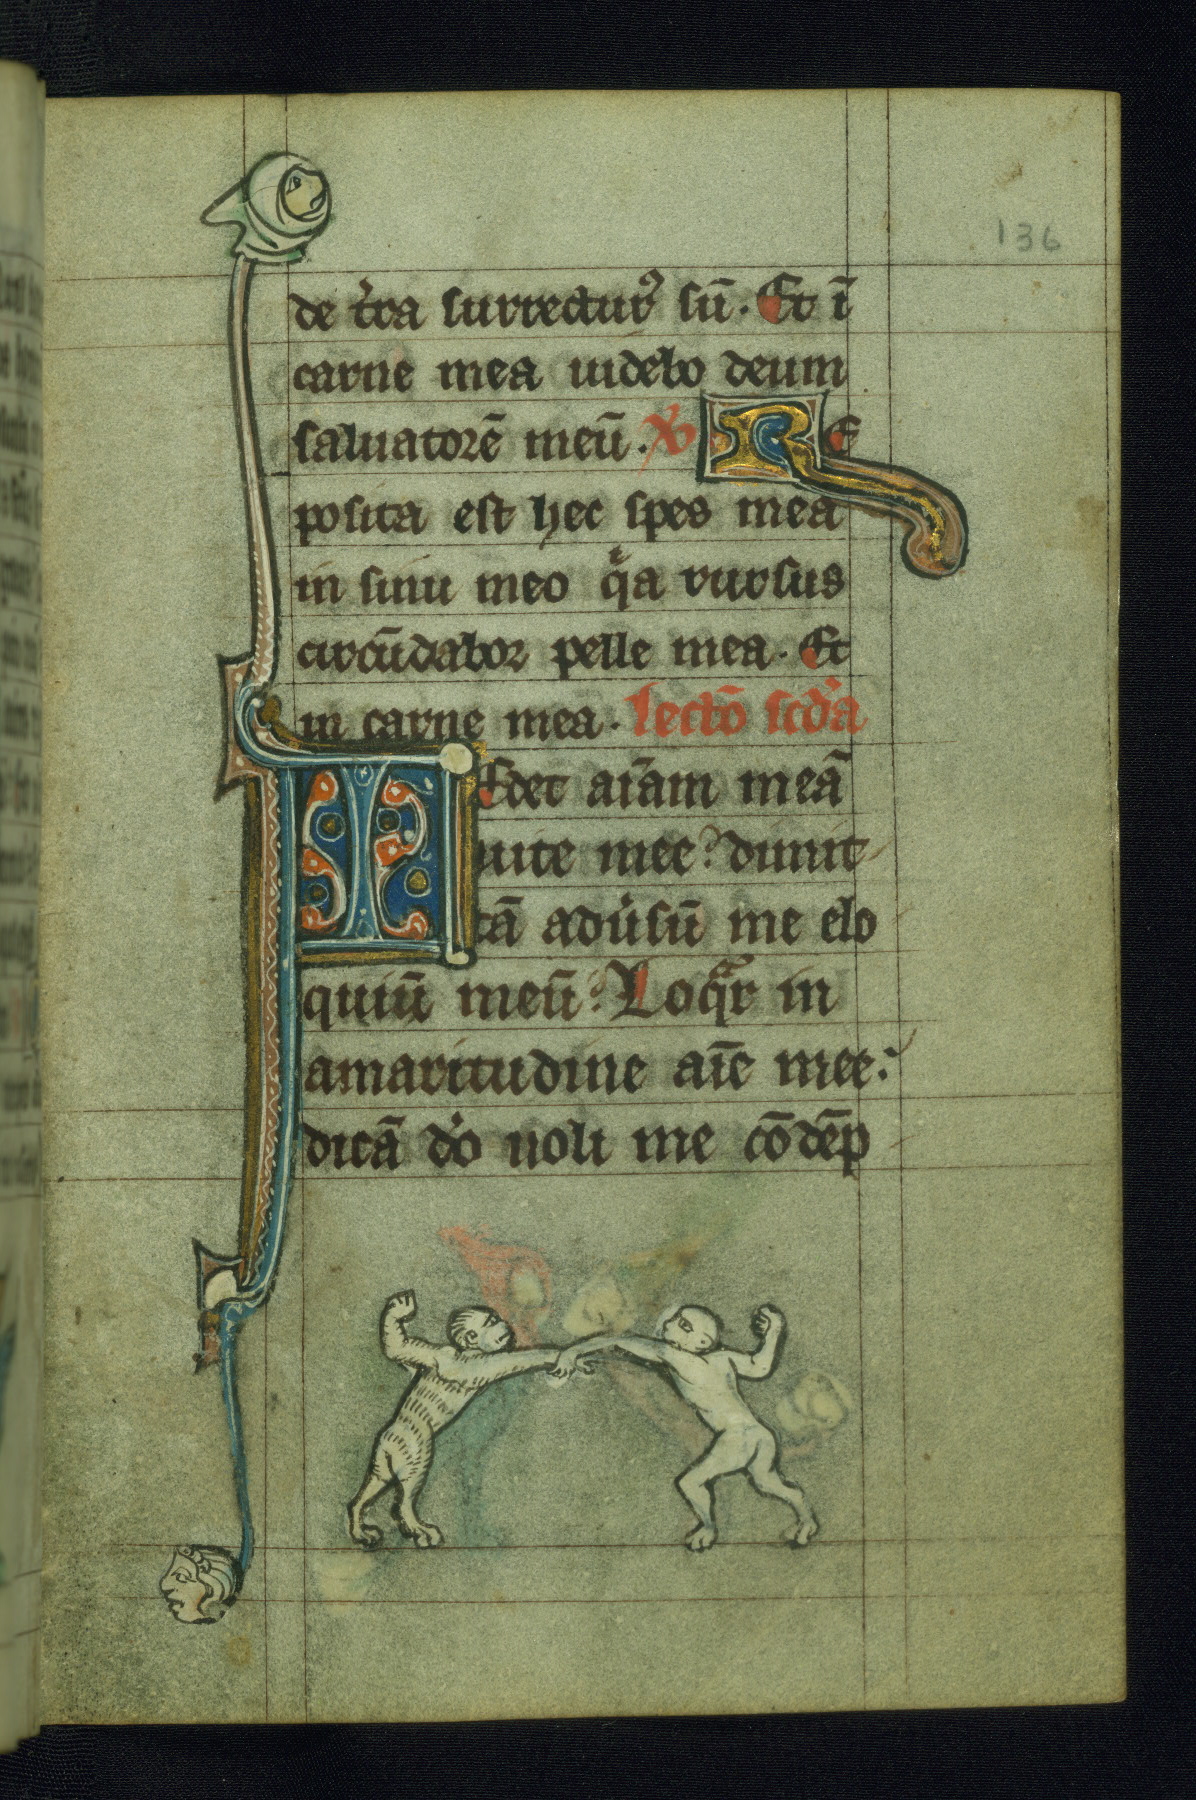 136
de t̉ra surrectur⁹ sū. Et ī
carne mea uidebo deum
saluatorē meū. ℣ RE
posita est hec spes mea
in sinu meo q̇a rursus
circūdabor pelle mea. Et
in carne mea. lectō scd̓a
TEdet aīam meā
uite mee? dimit
tā adủsū me elo
quiū meū? Loq̄r in
amaritudine aīe mee:
dicā d̓o noli me cōdēp